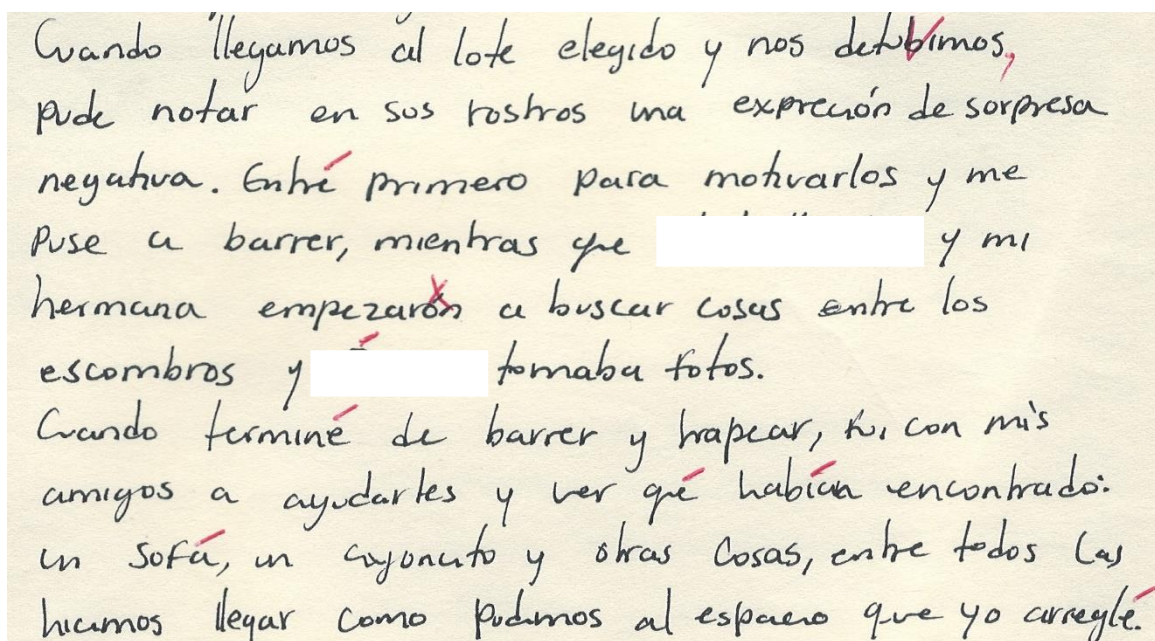 Cuando llegamos al lote elegido y nos detubimos,
pude notar en sus rostros una expreción de sorpresa
negativa. Entré primero para motivarlos y me
puse a barrer, mientras que y mi
hermana empezarón a buscar cosas entre los
escombros y tomaba fotos.
Cuando terminé de barrer y trapear, fui con mis
amigos a ayudarles y ver qué habían encontrado:
un sofá, un cajoncito y otras cosas, entre todos las
hicimos llegar como pudimos al espacio que yo arreglé.